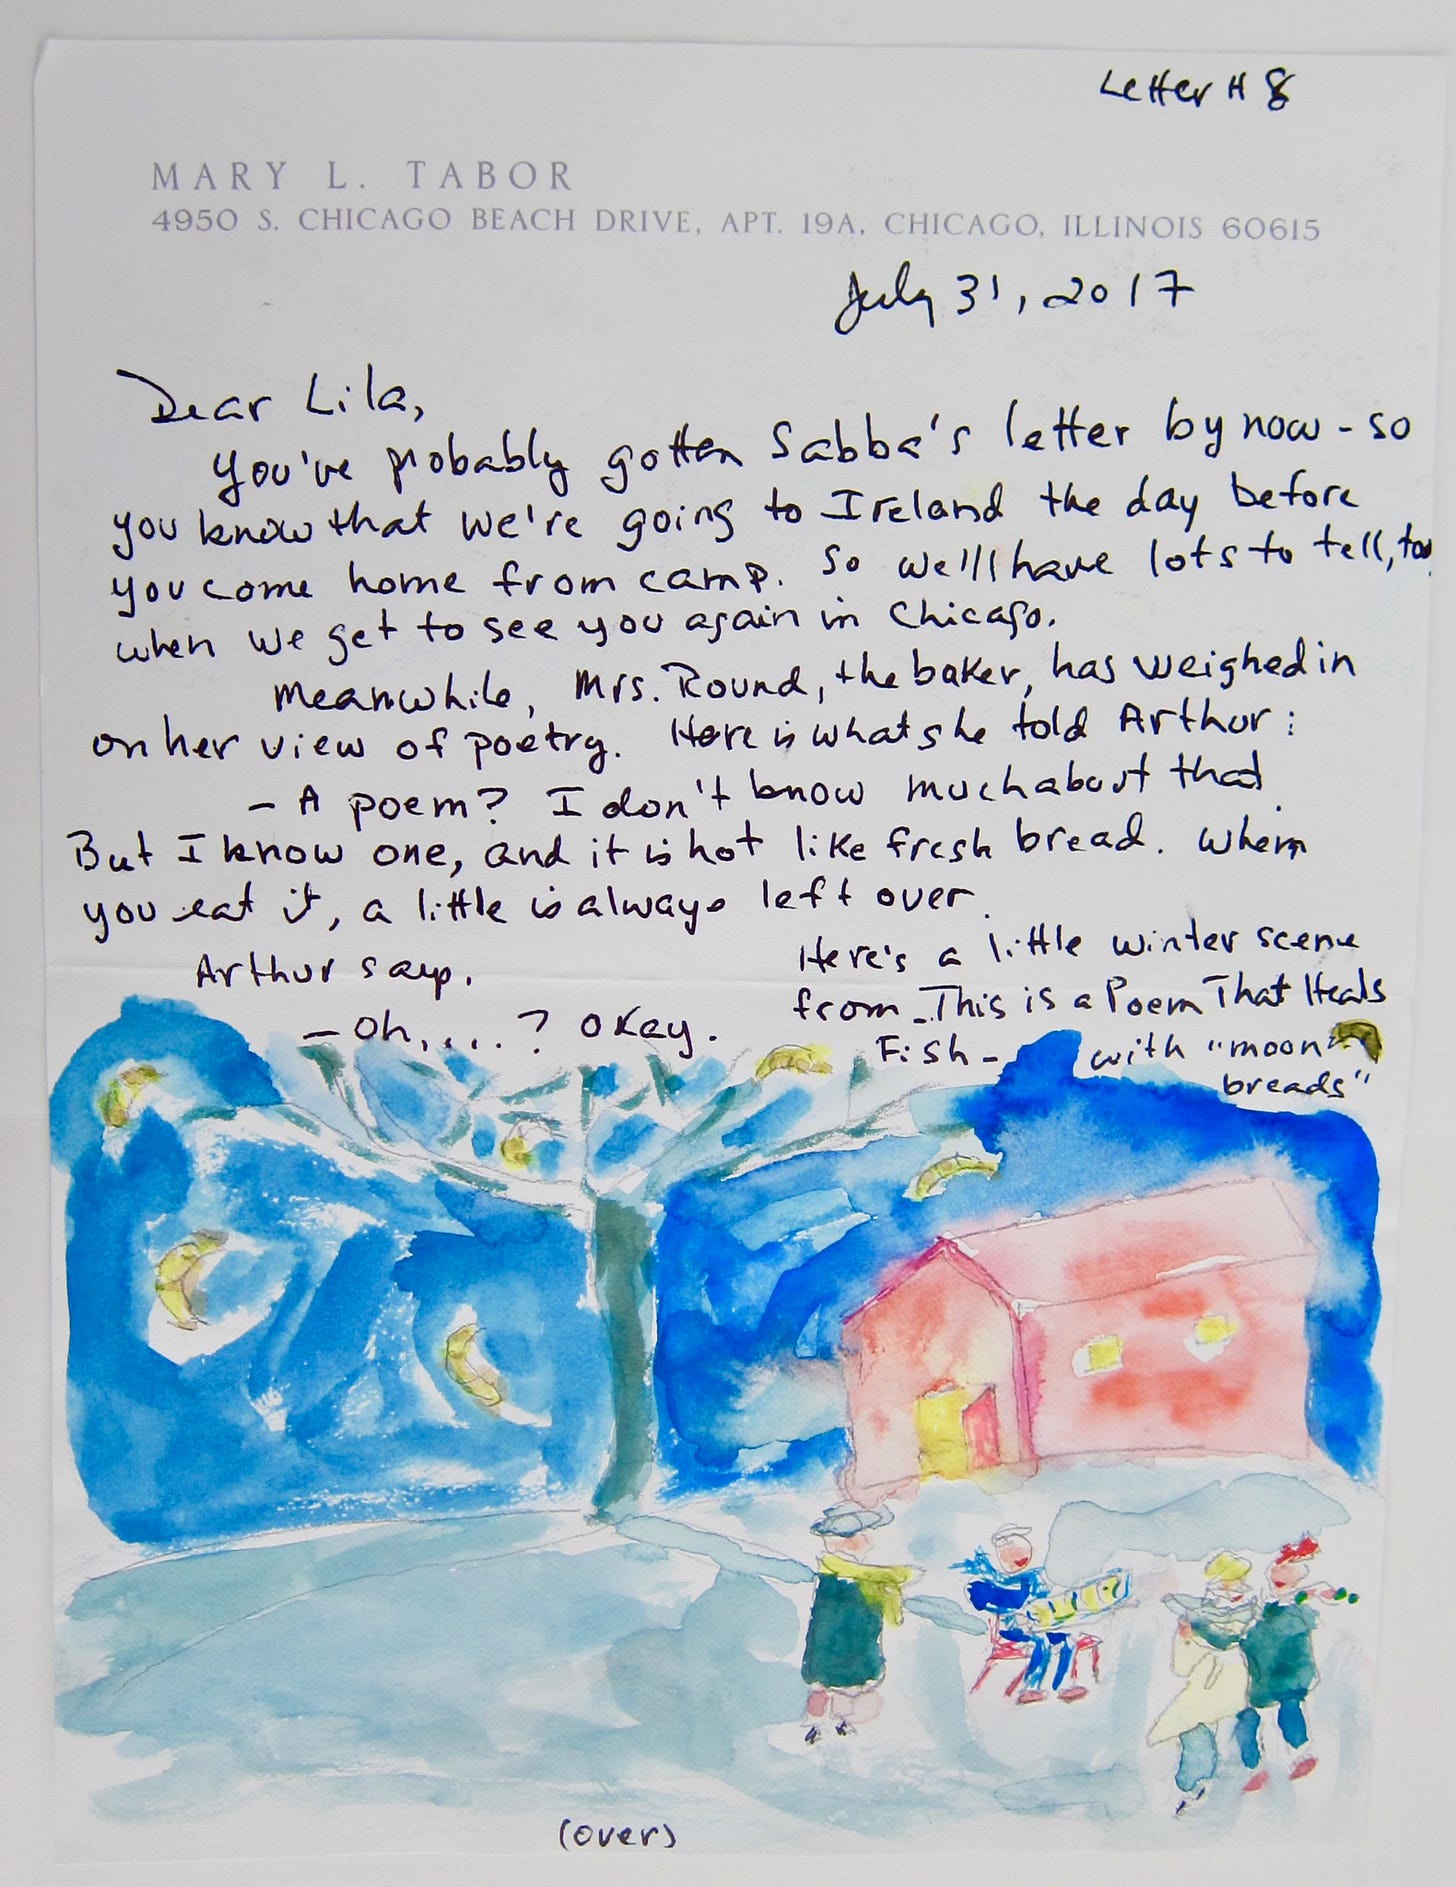 Letter # 8
MARY L. TABOR
4950 S. CHICAGO BEACH DRIVE, APT. 19A, CHICAGO, ILLINOIS 60615
July 31, 2017
Dear Lila,
You've probably gotten Sabba's letter by now - so
you know that we're going to Ireland the day before
you come home from camp. So we'll have lots to tell, too,
when we get to see you again in Chicago.
Meanwhile, Mrs. Round, the baker, has weighed in
on her view of poetry. Here is what she told Arthur:
- A poem? I don't know much about that.
But I know one, and it is hot like fresh bread. When
you eat it, a little is always left over.
Arthur says.
- Oh, ... ? Okay.
Here's a little winter scene
from This is a Poem That Heals
Fish - with "moon
breads"
(over)